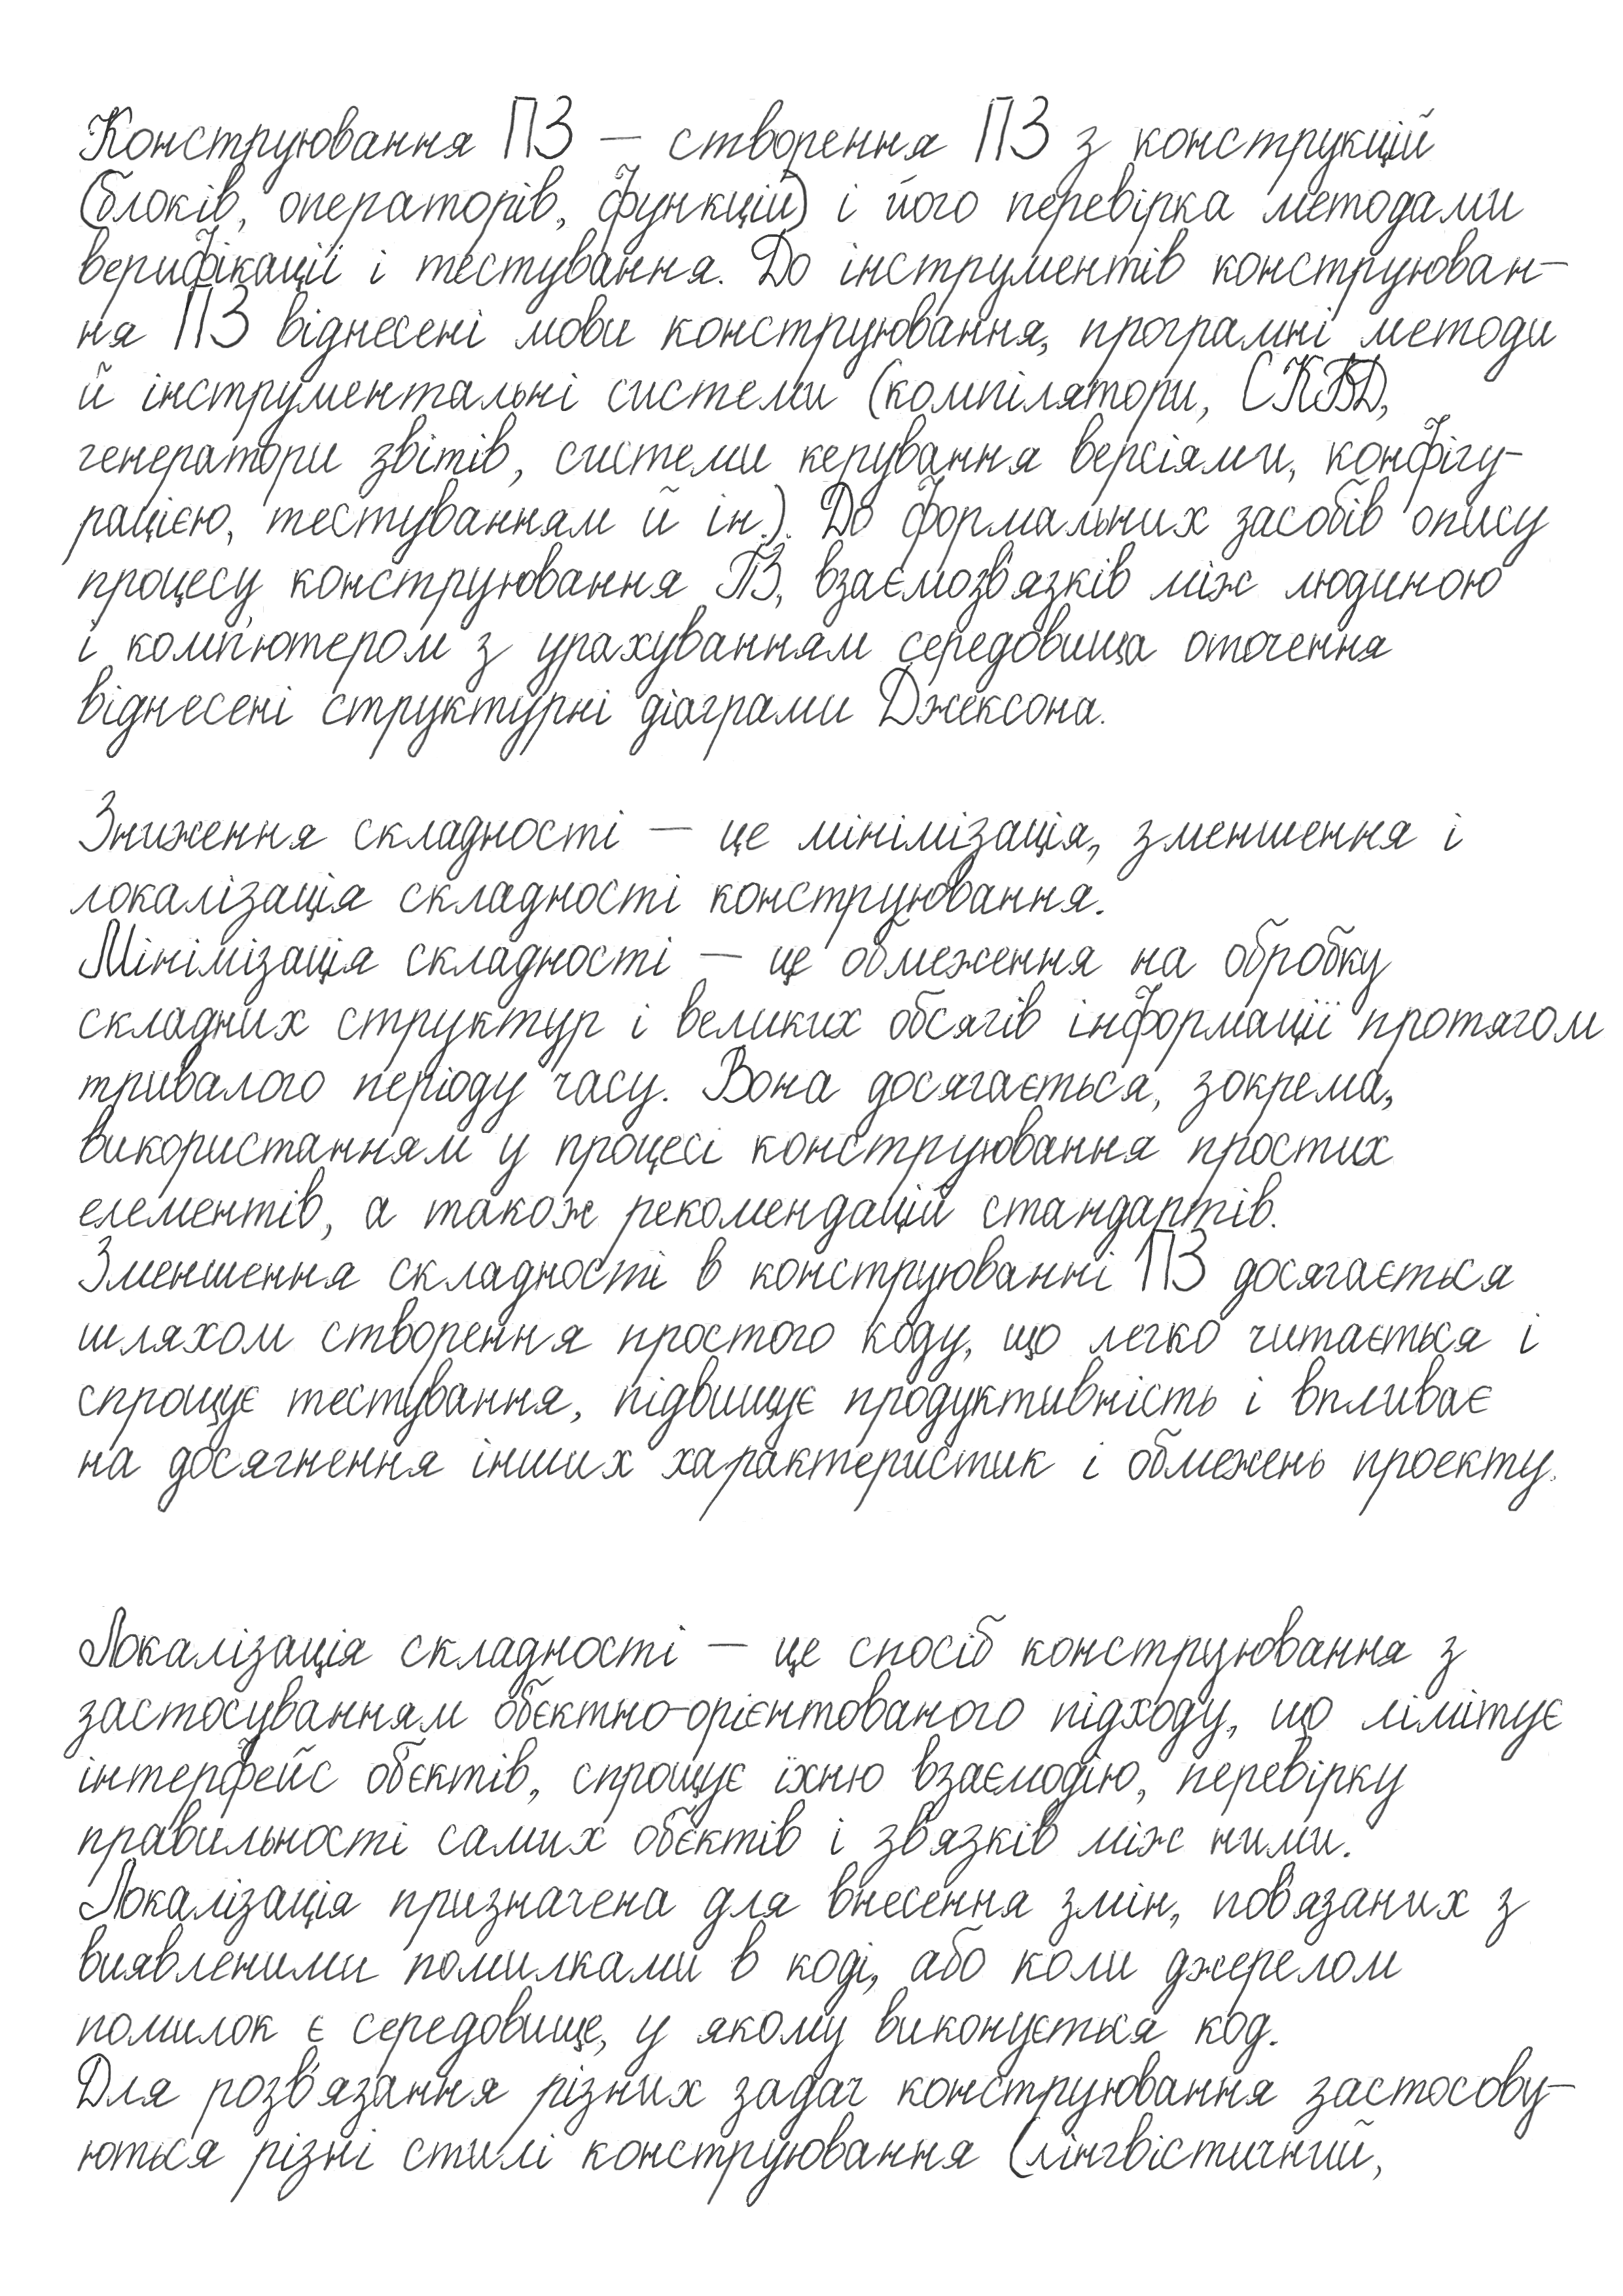 Конструювання ПЗ — створення ПЗ з конструкцій
(блоків, операторів, функцій) і його перевірка методами
верифікації і тестування. До інструментів конструюван-
ня ПЗ віднесені мови конструювання, програмні методи
й інструментальні системи (компілятори, СКБД,
генератори звітів, системи керування версіями, конфігу-
рацією, тестуванням й ін.). До формальних засобів опису
процесу конструювання ПЗ, взаємозв'язків між людиною
і комп'ютером з урахуванням середовища оточення
віднесені структурні діаграми Джексона.
Зниження складності — це мінімізація, зменшення і
локалізація складності конструювання.
Мінімізація складності — це обмеження на обробку
складних структур і великих обсягів інформації протягом
тривалого періоду часу. Вона досягається, зокрема,
використанням у процесі конструювання простих
елементів, а також рекомендацій стандартів.
Зменшення складності в конструюванні ПЗ досягається
шляхом створення простого коду, що легко читається і
спрощує тестування, підвищує продуктивність і впливає
на досягнення інших характеристик і обмежень проекту.
Локалізація складності — це спосіб конструювання з
застосуванням об'єктно-орієнтованого підходу, що лімітує
інтерфейс об'єктів, спрощує їхню взаємодію, перевірку
правильності самих об'єктів і зв'язків між ними.
Локалізація призначена для внесення змін, пов'язаних з
виявленими помилками в коді, або коли джерелом
помилок є середовище, у якому виконується код.
Для розв'язання різних задач конструювання застосову-
ються різні стилі конструювання (лінгвістичний,